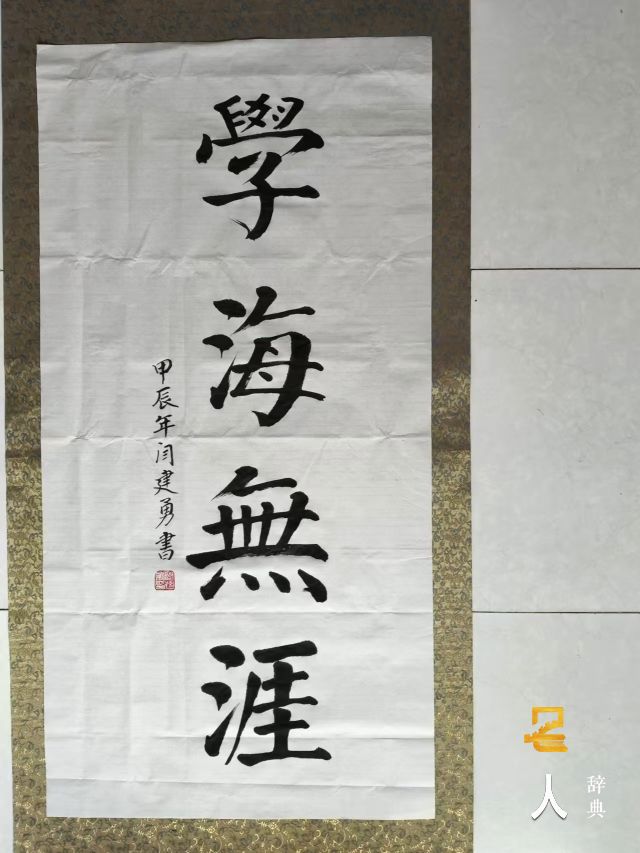 學海無涯
甲辰年闫建勇書
人
辞典